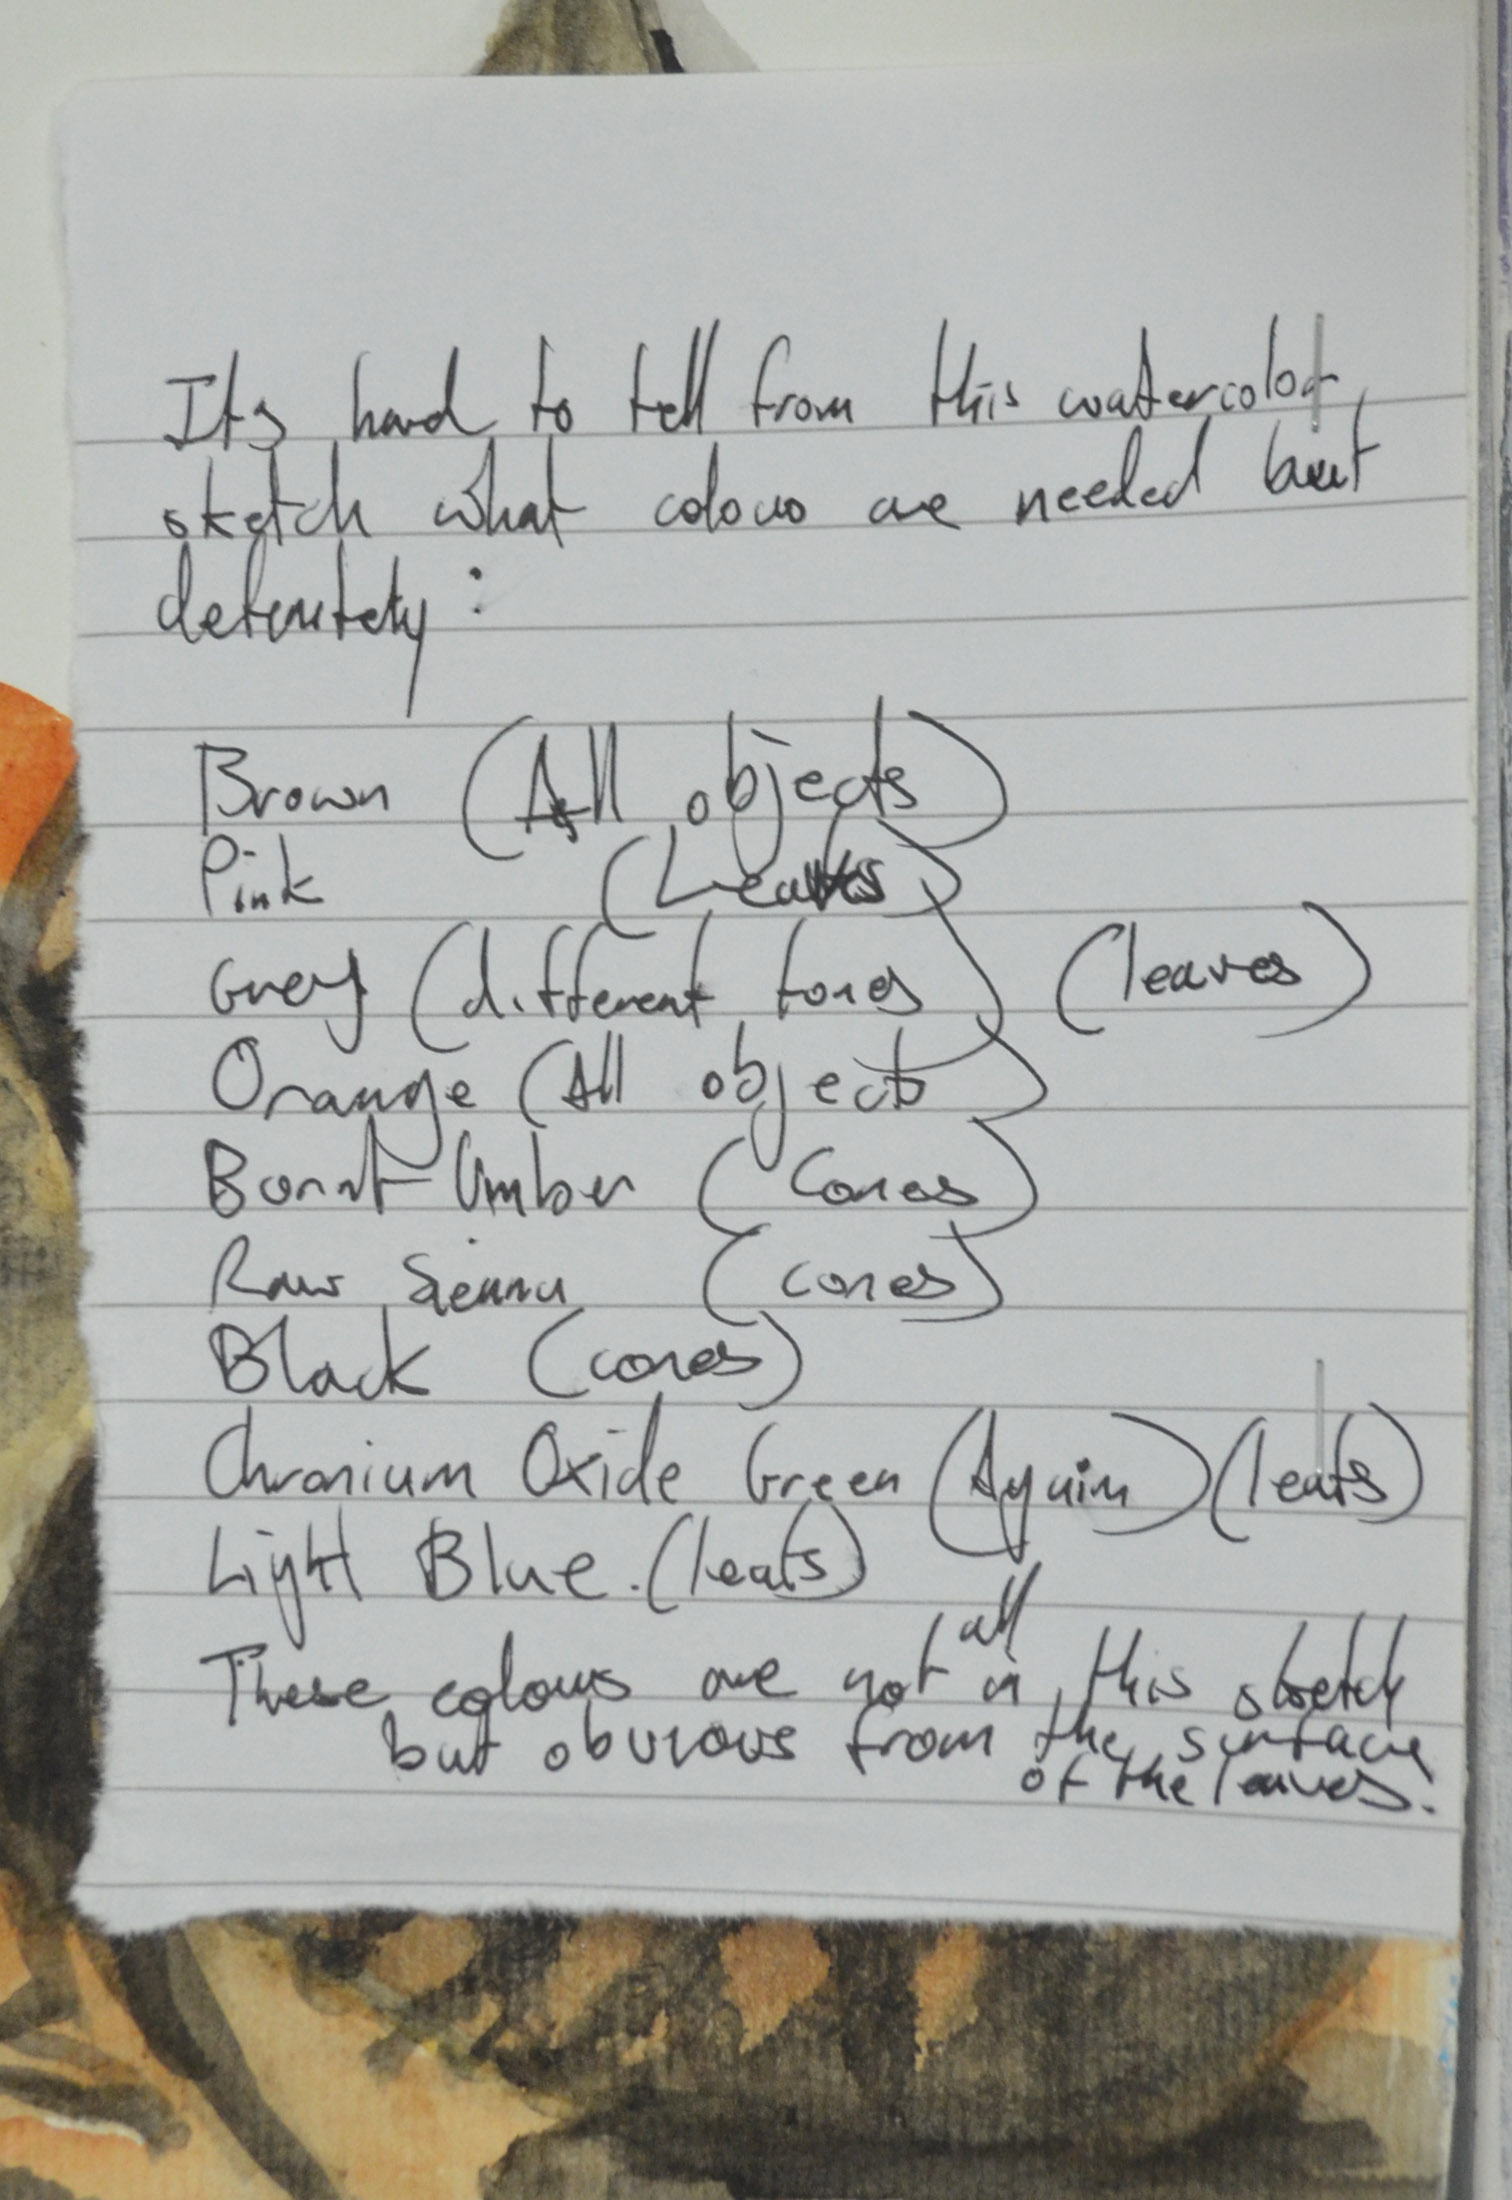 Its hard to tell from this watercolor
sketch what colous are needed but
definitely :
Brown (All objects)
Pink (Leafs)
Grey (different tones) (leaves)
Orange (All objects)
Bornt Umber (Cones)
Raw Sienna (cones)
Black (cones)
Chronium Oxide Green (Again) (leafs)
Light Blue. (leafs)
These colours are not all in this sketch
but obvious from the surface
of the leaves.